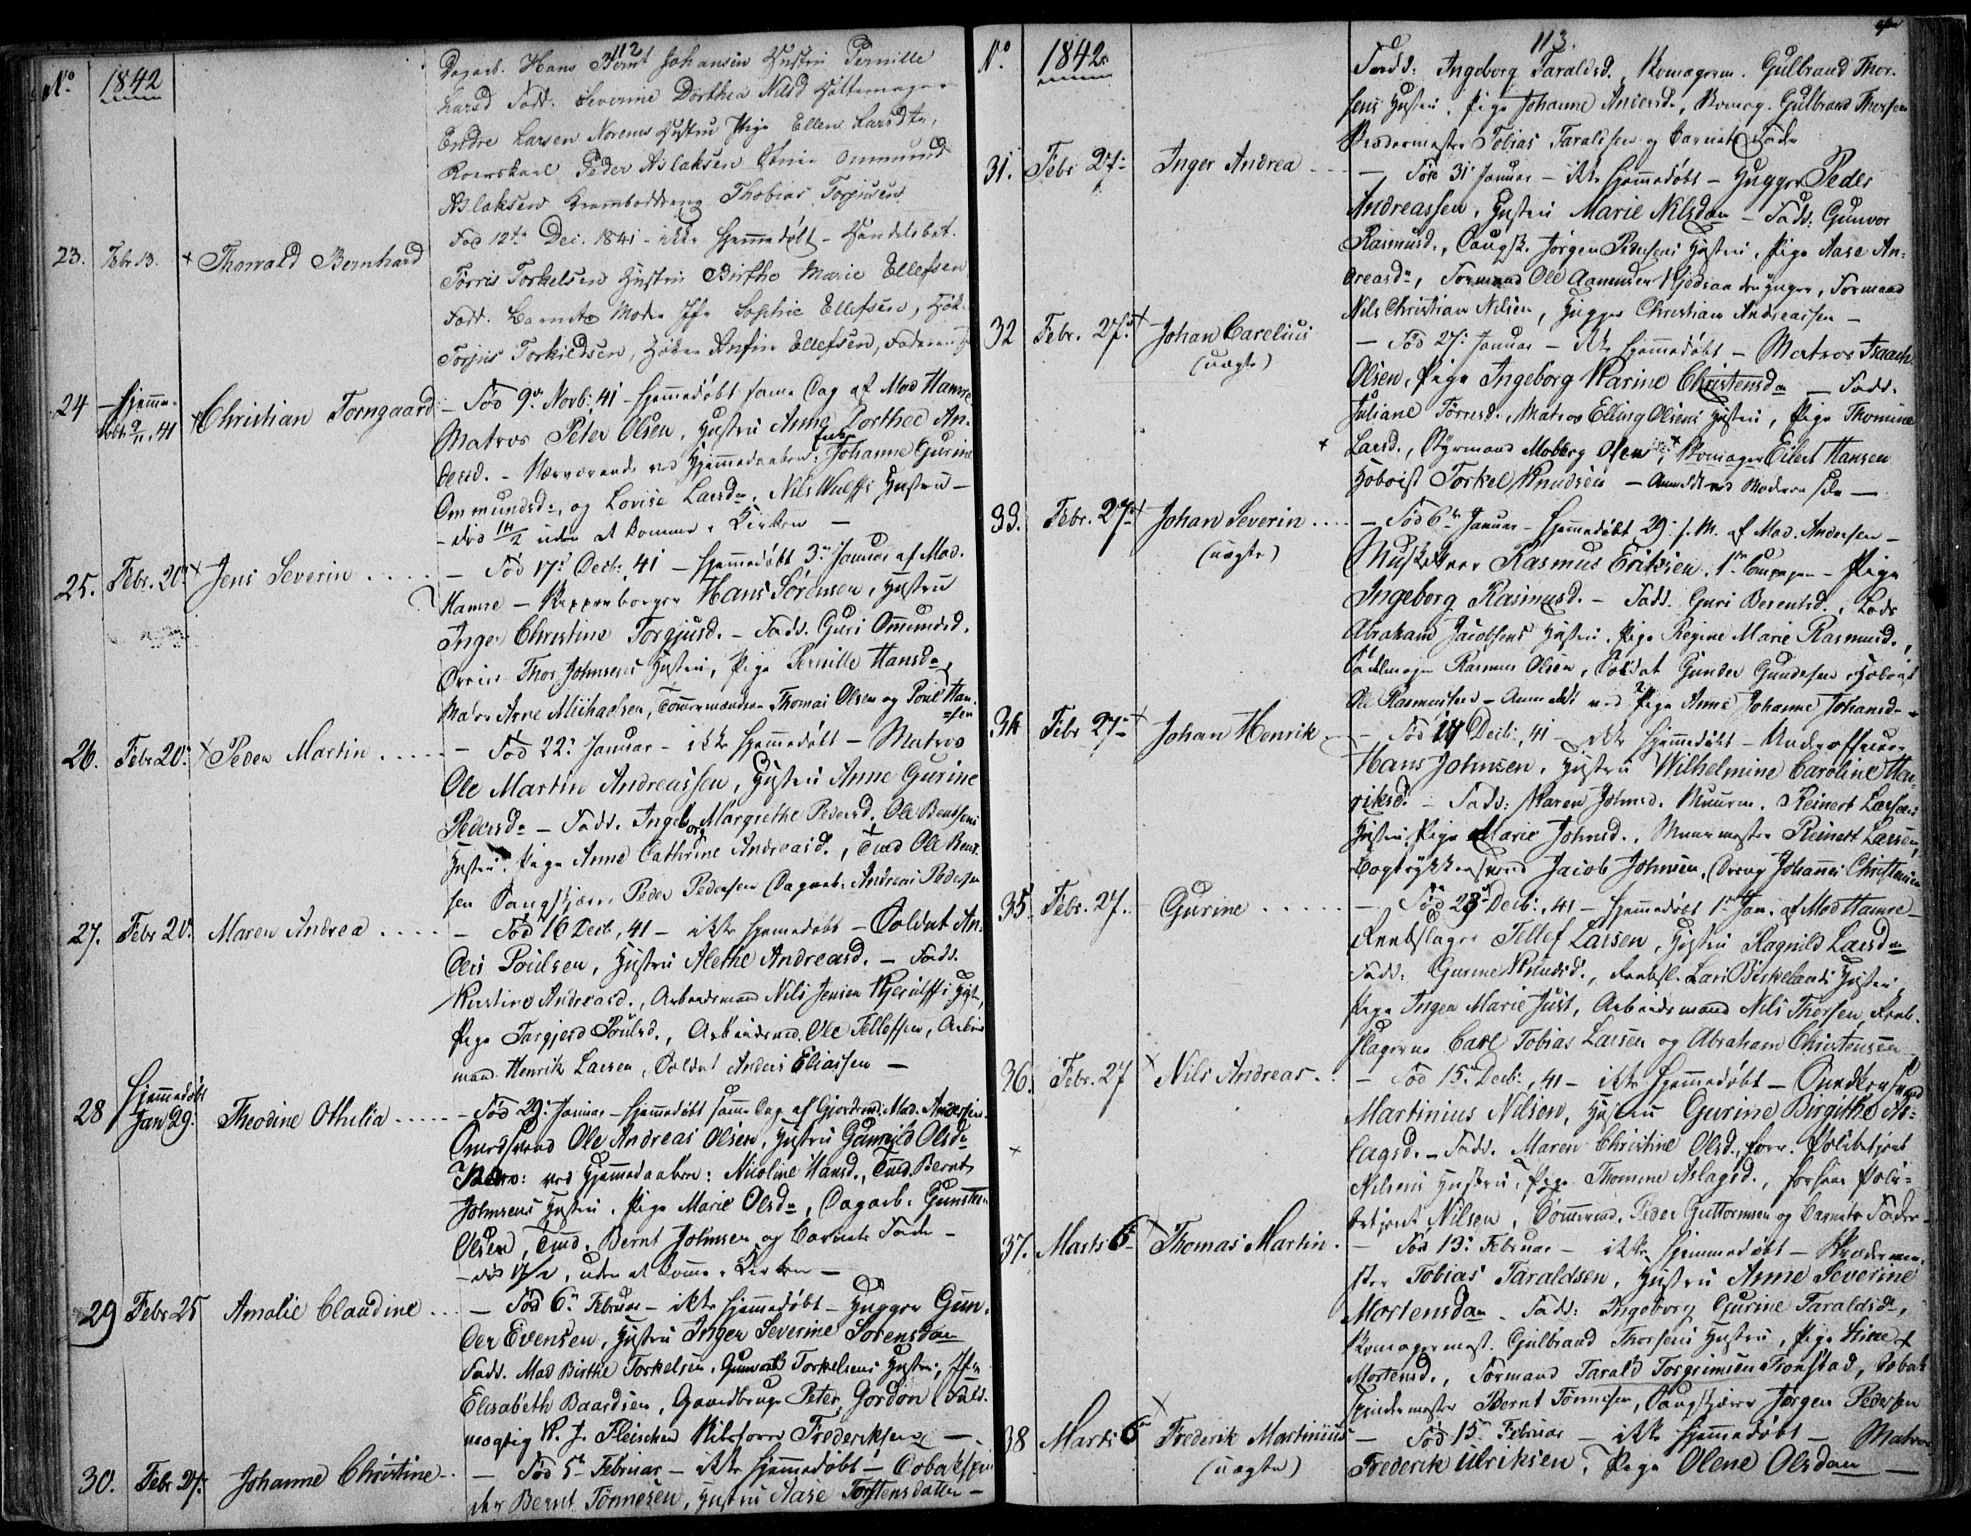 112
No 1842
Dagarb. Hans Bernt Johansen Hustru Pernille
Larsd Fadd. Severine Dorthea Nilsd Hattemager
Endre Larsen Norems Hustru Pige Ellen Larsdtr,
Peder Aslaksen Ommund
Aslaksen Kramboddreng Thobias Torjusen
23. Febr 13. + Thorvald Bernhard
Fød 12te Dec. 1841 - ikke hjemmedøbt - Handelsbet.
Tørris Torkelsen Hustru Birthe Marie Ellefsen
Fadd. Barnets Moder Jfr Sophie Ellefsen, Høk.
Torjus Torkildsen, Høker Anfin Ellefsen, Faderen
24 Hjemme-
døbt 9/11, 41 + Christian Torngaard
- Fød 9de Novb. 41 - hjemmedøbt samme Dag af Mad Hamre
Matros Peter Olsen, Hustru Anne Dorthea An-
dersd. - Nærværende ved Hjemmedaaben: Enke Johanne Gurine
Ommundsd., og Lovise Larsdr, Nils Wulffs Hustru -
- død 14/2 uden at komme i Kirken -
25. Febr. 20 + Jens Severin ....
- Fød 17: Decbr. 41 - hjemmedøbt 3de Januar af Mad.
Hamre - Hans Sørensen, Hustru
Inger Christine Torgjusd. - Fadd. Guri Omundsd.
Thor Johnsens Hustru, Pige Pernille Hansdr,
Matr. Arne Michaelsen, Tømmermændene Thomas Olsen og Poul Han-
sen
26. Febr 20: + Peder Martin ....
- Fød 22: Januar - ikke hjemmedøbt - Matros
Ole Martin Andreassen, Hustru Anne Gurine
Pedersdr - Fadd. Ingeborg Margrethe Pedersd, Ole Bentsens
Hustru, Pige Anne Cathrine Andreasd., Tmd Ole Bent-
sen Peder Pedersen Dagarb. Andreas Pedersen
27. Febr 20: Maren Andrea ....
- Fød 16 Decb, 41 - ikke hjemmedøbt - Soldat An-
ders Poulsen, Hustru Alethe Andreasd. - Fadd.
Kirstine Andreasd., Arbeidsmand Nils Jensen Kjerulffs Hust.,
Pige Targjerd Poulsd., Arbeidsmd. Ole Tellefsen, Arbeids
mand Henrik Larsen, Soldat Anders Eliassen -
28 Hjemmedøbt
Jan 29: Theodine Othilia ....
- Fød 29: Januar - hjemmedøbt samme Dag af Gjordemd. Mad. Andersen
Ole Andreas Olsen, Hustru Gunnild Olsdr
ved Hjemmedaaben: Nicoline Hansd., Tmd. Bernt
Johnsens Hustru, Pige Marie Olsdr, Dagarb.
Olsen, Tmd. Bernt Johnsen og Barnets Fader -
- død 17/2, uden at komme i Kirken -
29 Febr 25 Amalie Claudine ...
- Fød 6te Februar - ikke hjemmedøbt - Hugger Gun-
der Evensen, Hustru Inger Severine Sørensdatter
Fadd. Mad Birthe Torkelsen, Gunvald Torkelsens Hustru, Jfr
Elisabeth Baardsen, Peter Gordon
mægtig K. J. Fleischer Frederiksen -
30. Febr 27: Johanne Christine ..
- Fød 5te Februar - ikke hjemmedøbt - Tobakspin-
der Bernt Tønnesen, Hustru Aase Torstensdatter -
113.
No 1842
Fadd: Ingeborg Taraldsd., Skomagerm. Gulbrand Thor-
sens Hustru, Pige Johanne Andersd., Skomag. Gulbrand Thorsen
Skrædermester Tobias Taraldsen og Barnets Fader
31. Febr 27: Inger Andrea ...
- Fød 31 Januar - ikke hjemmedøbt - Hugger Peder
Andreassen, Hustru Marie Nilsdtr - Fadd: Gunvor
Rasmusd., Jørgen Pedersens Hustru, Pige Aase An-
dreasdr, Formand Ole Aamundsen Kjedsaa den yngre, Formand
Nils Christian Nilsen, Hugger Christian Andreassen -
32 Febr. 27: + Johan Carelius
(uægte)
- Fød 27: Januar - ikke hjemmedøbt - Matros Isaach
Olsen, Pige Ingeborg Karine Christensdr - Fadd.
Juliane Tørresd., Matros Elling Olsens Hustru, Pige Thomine
+ Larsd., Styrmand Moberg Olsen, Skomager Eilert Hansen
Hoboist Torkel Knudsen - Anmeldt ved Moderen selv -
33. Febr. 27 + Johan Severin ....
(uægte)
- Fød 6te Januar - hjemmedøbt 29: s. M. af Mad. Andersen -
Musketeer Rasmus Eriksen, 1ste Compagni - Pige
Ingeborg Rasmusd. - Fadd. Guri Berentsd., Lods
Abraham Jacobsens Hustru, Pige Regine Marie Rasmusd.,
Rasmus Olsen, Soldat Gunder Gundersen Hoboist
Ole Rasmussen - Anmeldt ved Pige Anne Johanne Johansdr -
34 Febr 27 + Johan Henrik ...
- Fød 14 Decb. 41 - ikke hjemmedøbt - Underofficeer
Hans Johnsen, Hustru Wilhelmine Caroline Hen-
riksd. - Fadd: Karen Johnsd. Muurm. Reinert Larsens
Hustru, Pige Marie Johnsd., Muurmester Reinert Larsen,
Bogtrykkersvend Jacob Johnsen, Dreng Johannes Christensen
35 Febr. 27. Gurine ....
- Fød 28 Decb. 41 - hjemmedøbt 1ste Jan. af Mad Hamre -
Reebslager Tellef Larsen, Hustru Ragnild Larsdtr
Fadd: Gurine Knudsd., Reebsl. Lars Birkelands Hustru,
Pige Inger Marie Just, Arbeidsmand Nils Thorsen, Reeb-
slagerne Carl Tobias Larsen og Abraham Christensen
36. Febr. 27 + Nils Andreas ..
- Fød 15de Decb. 41 - ikke hjemmedøbt - Snedkersvend
Martinius Nilsen, Hustru Gurine Birgithe As-
+ lagsd. - Fadd. Maren Christine Olsd., forr. Politibetjent
Nilsens Hustru, Pige Thomine Aslagsd., forhen Poli-
tibetjent Nilsen, Tømmermd. Peder Guttormsen og Barnets Fader -
37. Marts 6 + Thomas Martin .
- Fød 13: Februar - ikke hjemmedøbt - Skrædderme-
ster Tobias Taraldsen, Hustru Anne Severine
Mortensdtr - Fadd: Ingeborg Gurine Taraldsdr,
Skomagermest. Gulbrand Thorsens Hustru, Pige Stine
Mortensd., Formand Tarald Torgrimsen Tronstad, Tobak
spindermester Bernt Tønnesen, Jørgen Pedersen
38 Marts 6 + Frederik Martinius
(uægte)
- Fød 15 Februar - ikke hjemmedøbt - Matros
Frederik Ulriksen, Pige Olene Olsdatter -